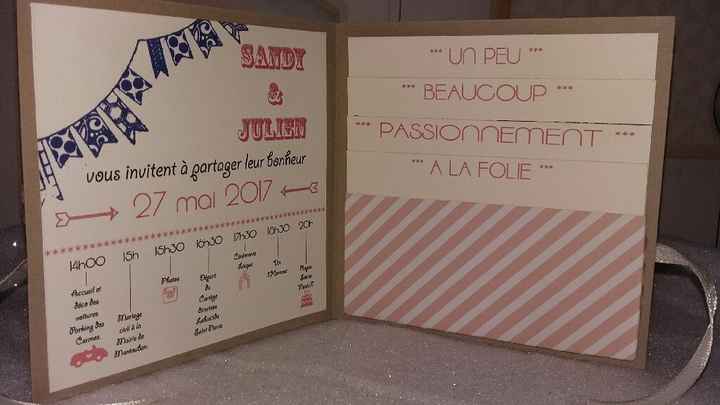 SANDY
&
JULIEN
vous invitent à partager leur bonheur
27 mai 2017
14h00
Accueil et
déco des
voitures
Parking des
Carmes
15h
Mariage
civil à la
Mairie de
15h30
Photos
16h30
Départ
du
Cortège
17h30
Cérémonie
Laïque
18h30
Vin
d'Honneur
20h
Repas
*** UN PEU ***
*** BEAUCOUP ***
*** PASSIONNEMENT ***
*** A LA FOLIE ***